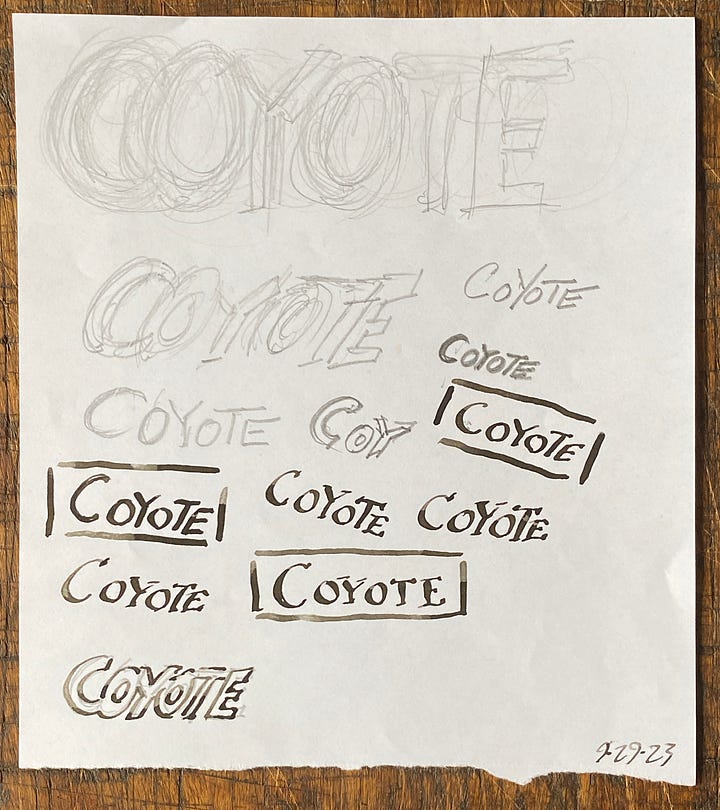 COYOTE
COYOTE
COYOTE
COYOTE
COYOTE
COY
COYOTE
COYOTE
COYOTE
COYOTE
COYOTE
COYOTE
COYOTE
9-29-23